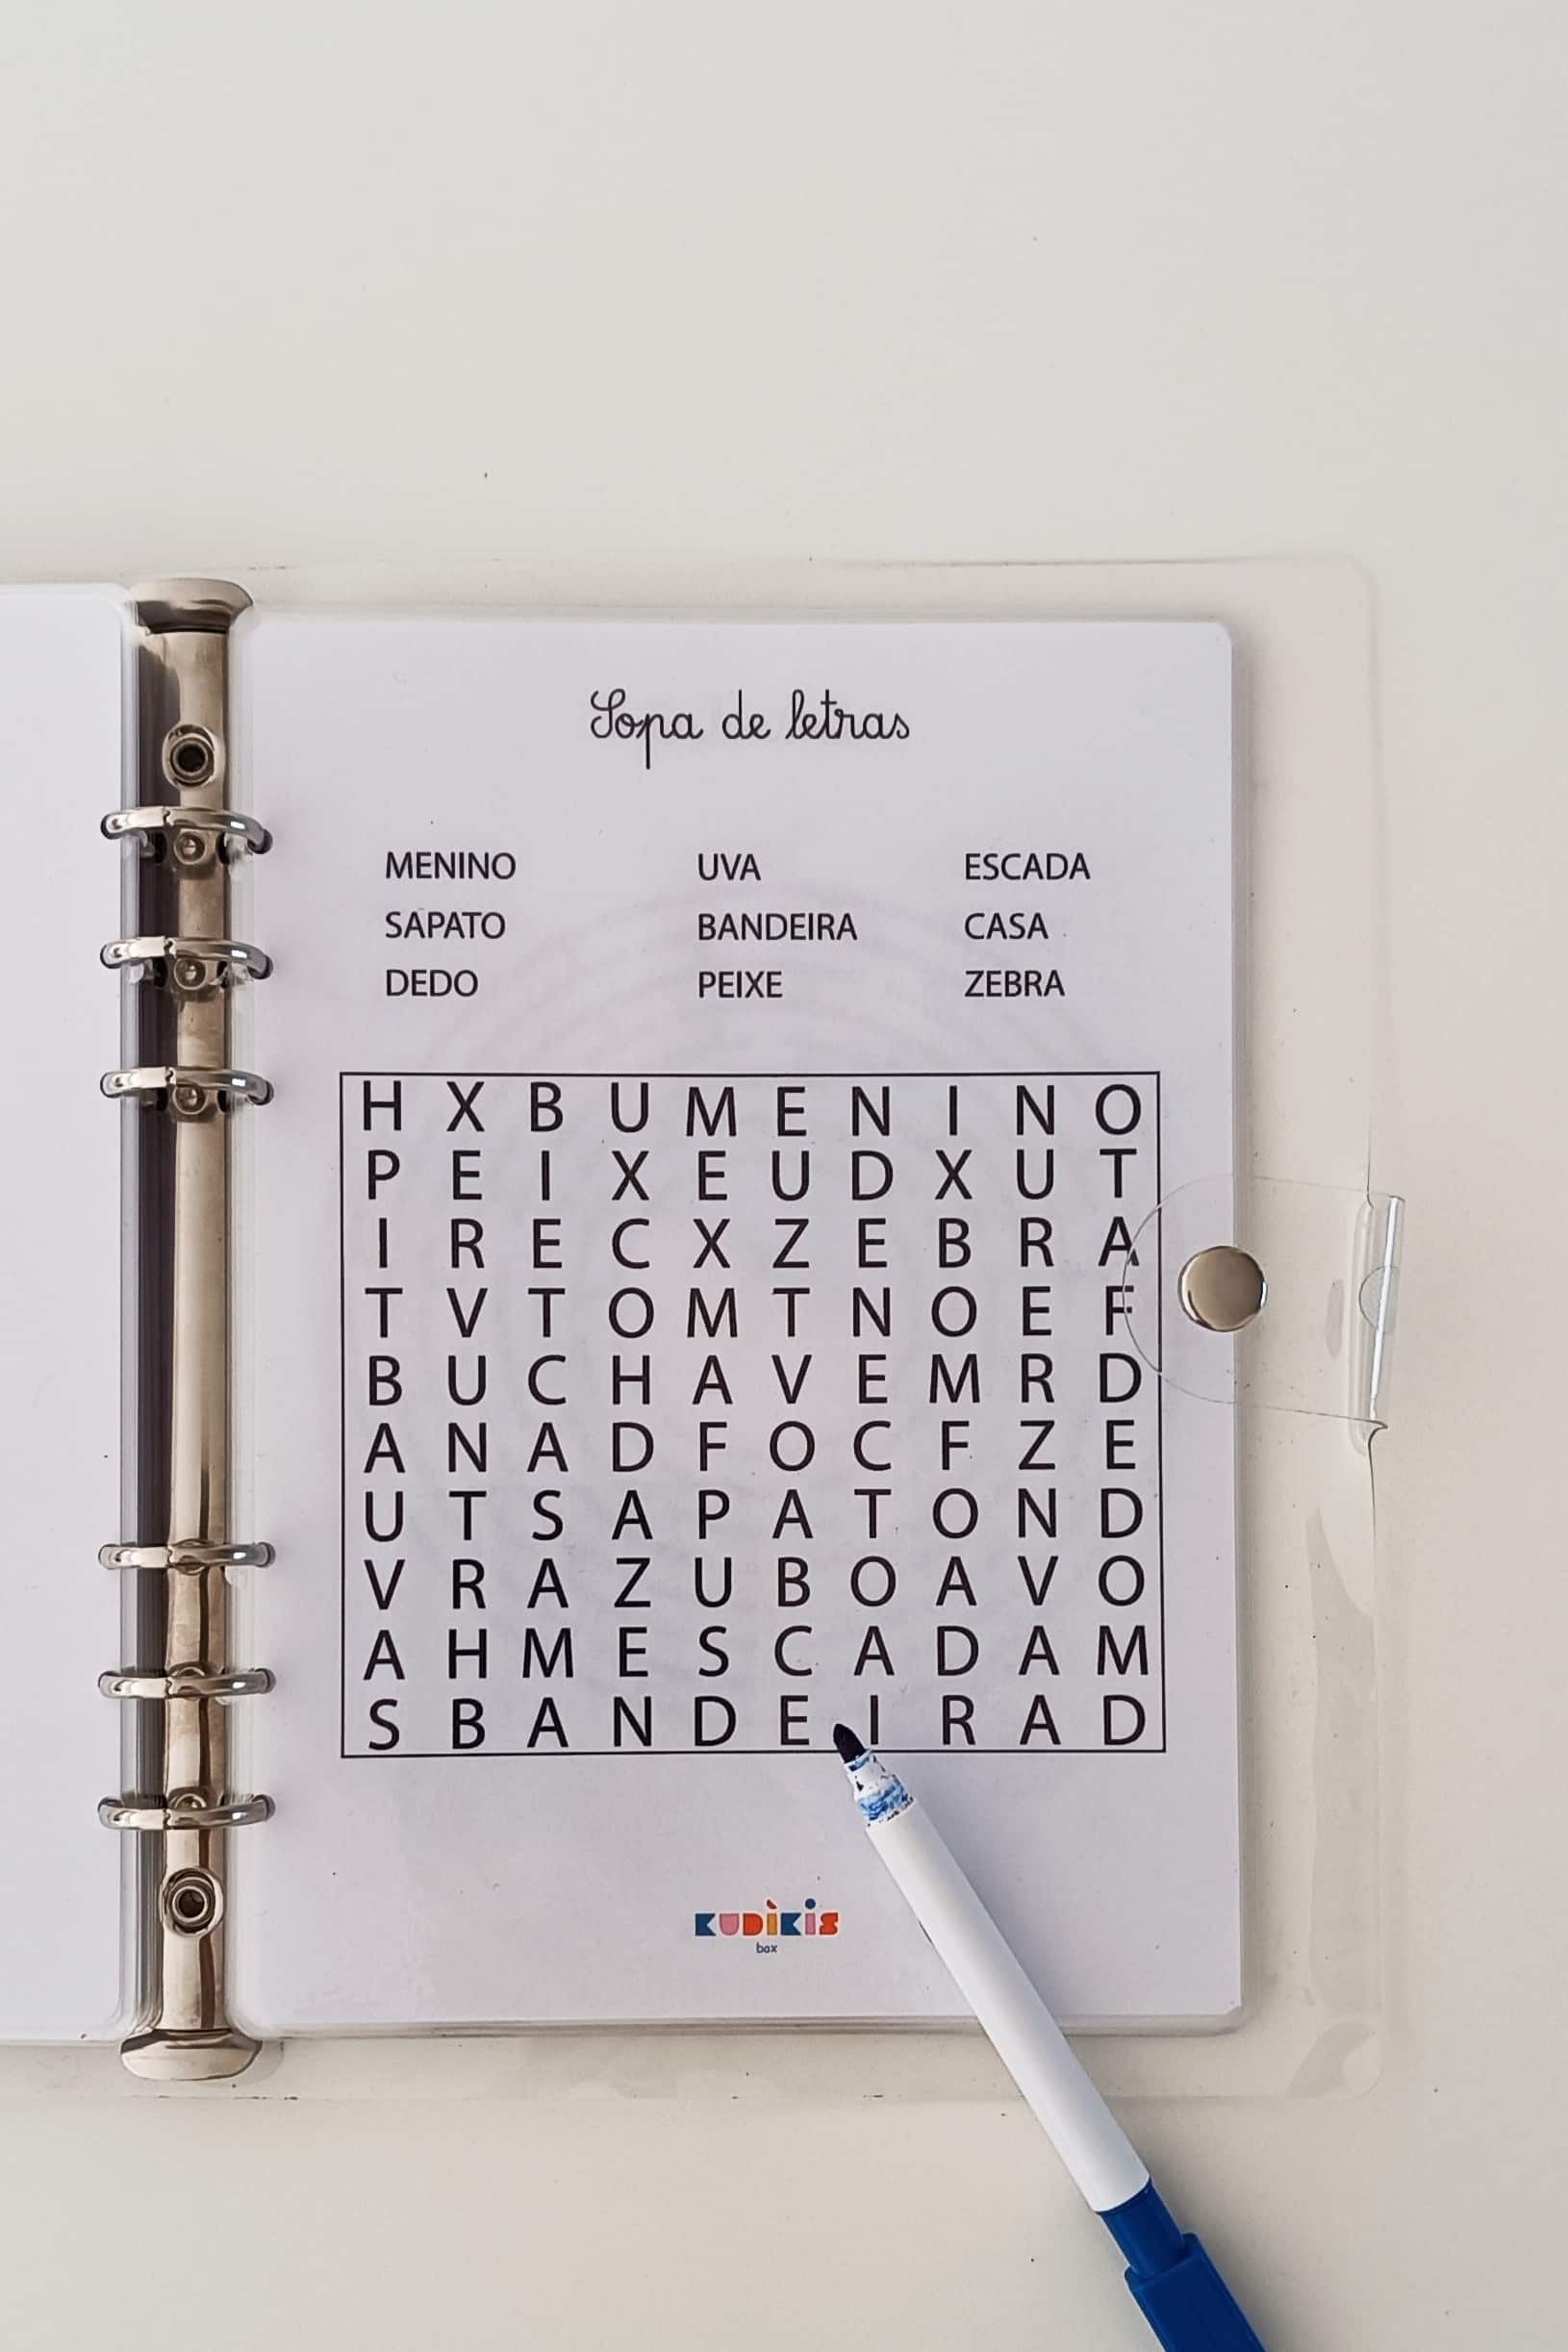 Sopa de letras
MENINO UVA ESCADA
SAPATO BANDEIRA CASA
DEDO PEIXE ZEBRA
H X B U M E N I N O
P E I X E U D X U T
I R E C X Z E B R A
T V T O M T N O E F
B U C H A V E M R D
A N A D F O C F Z E
U T S A P A T O N D
V R A Z U B O A V O
A H M E S C A D A M
S B A N D E I R A D
KUDÌKIS
box